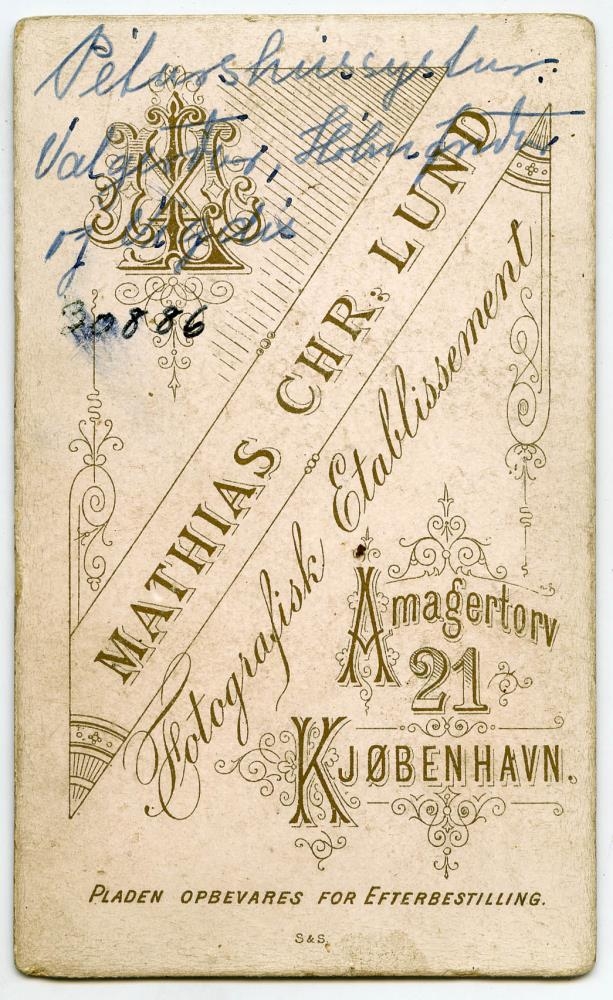 Péturshússystur:
Valgerður, Hólmfríður
og Vigdís
30886
MATHIAS CHR. LUND
Fotografisk Etablissement
Amagertorv
21
KJØBENHAVN.
PLADEN OPBEVARES FOR EFTERBESTILLING.
S&S.